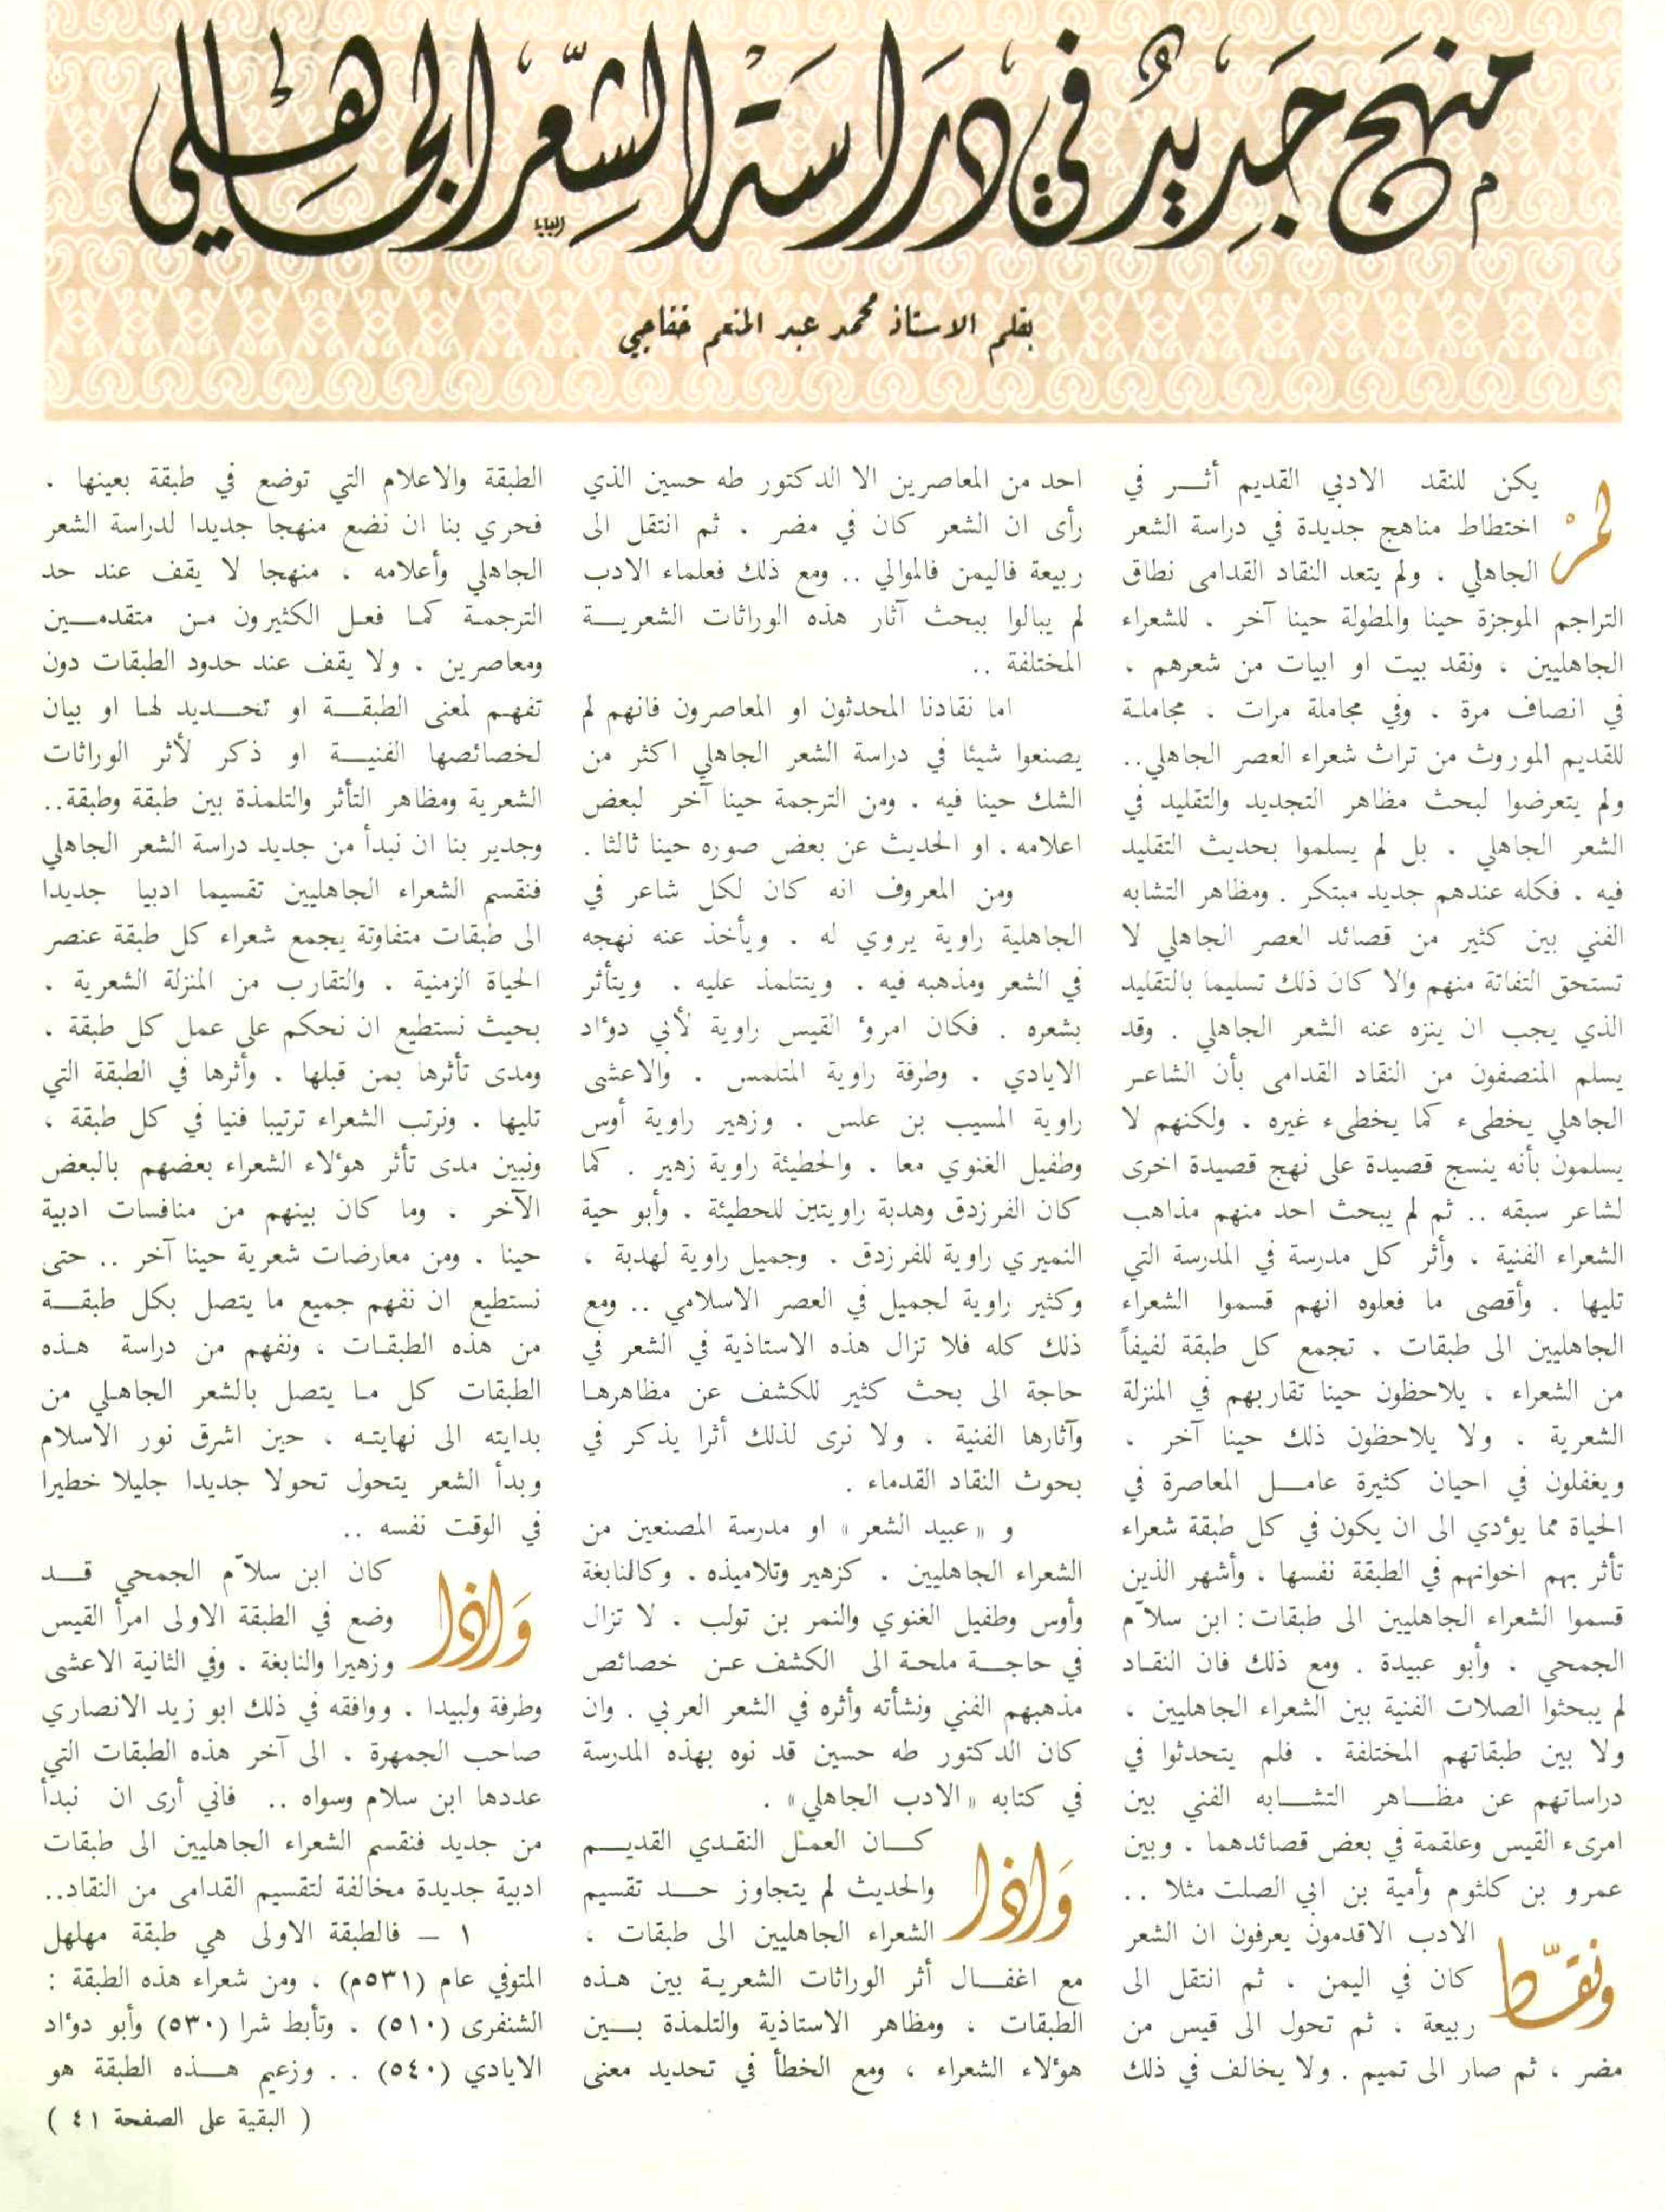 منهج جديد في دراسة الشعر الجاهلي
بقلم الاستاذ محمد عبد المنعم خفاجي
لم يكن للنقد الادبي القديم أثر في
اختطاط مناهج جديدة في دراسة الشعر
الجاهلي ، ولم يتعد النقاد القدامى نطاق
التراجم الموجزة حينا والمطولة حينا آخر ، للشعراء
الجاهليين ، ونقد بيت او ابيات من شعرهم ،
في انصاف مرة ، وفي مجاملة مرات ، مجاملة
للقديم الموروث من تراث شعراء العصر الجاهلي..
ولم يتعرضوا لبحث مظاهر التجديد والتقليد في
الشعر الجاهلي ، بل لم يسلموا بحديث التقليد
فيه ، فكله عندهم جديد مبتكر . ومظاهر التشابه
الفني بين كثير من قصائد العصر الجاهلي لا
تستحق التفاتة منهم والا كان ذلك تسليما بالتقليد
الذي يجب ان ينزه عنه الشعر الجاهلي . وقد
يسلم المنصفون من النقاد القدامى بأن الشاعر
الجاهلي يخطىء كما يخطىء غيره ، ولكنهم لا
يسلمون بأنه ينسج قصيدة على نهج قصيدة اخرى
لشاعر سبقه .. ثم لم يبحث احد منهم مذاهب
الشعراء الفنية ، وأثر كل مدرسة في المدرسة التي
تليها . وأقصى ما فعلوه انهم قسموا الشعراء
الجاهليين الى طبقات ، تجمع كل طبقة لفيفاً
من الشعراء ، يلاحظون حينا تقاربهم في المنزلة
الشعرية ، ولا يلاحظون ذلك حينا آخر ،
ويغفلون في احيان كثيرة عامل المعاصرة في
الحياة مما يؤدي الى ان يكون في كل طبقة شعراء
تأثر بهم اخوانهم في الطبقة نفسها ، وأشهر الذين
قسموا الشعراء الجاهليين الى طبقات : ابن سلاّم
الجمحي ، وأبو عبيدة . ومع ذلك فان النقاد
لم يبحثوا الصلات الفنية بين الشعراء الجاهليين ،
ولا بين طبقاتهم المختلفة ، فلم يتحدثوا في
دراساتهم عن مظاهر التشابه الفني بين
امرىء القيس وعلقمة في بعض قصائدهما ، وبين
عمرو بن كلثوم وأمية بن ابي الصلت مثلا ..
ونقدة الادب الاقدمون يعرفون ان الشعر
كان في اليمن ، ثم انتقل الى
ربيعة ، ثم تحول الى قيس من
مضر ، ثم صار الى تميم . ولا يخالف في ذلك
احد من المعاصرين الا الدكتور طه حسين الذي
رأى ان الشعر كان في مضر ، ثم انتقل الى
ربيعة فاليمن فالموالي .. ومع ذلك فعلماء الادب
لم يبالوا ببحث آثار هذه الوراثات الشعرية
المختلفة ..
اما نقادنا المحدثون او المعاصرون فانهم لم
يصنعوا شيئا في دراسة الشعر الجاهلي اكثر من
الشك حينا فيه ، ومن الترجمة حينا آخر لبعض
اعلامه ، او الحديث عن بعض صوره حينا ثالثا .
ومن المعروف انه كان لكل شاعر في
الجاهلية راوية يروي له ، ويأخذ عنه نهجه
في الشعر ومذهبه فيه ، ويتتلمذ عليه ، ويتأثر
بشعره . فكان امرؤ القيس راوية لأبي دؤاد
الايادي ، وطرفة راوية المتلمس ، والاعشى
راوية المسيب بن علس . وزهير راوية أوس
وطفيل الغنوي معا ، والحطيئة راوية زهير . كما
كان الفرزدق وهدبة راويتين للحطيئة ، وأبو حية
النميري راوية للفرزدق ، وجميل راوية لهدبة ،
وكثير راوية لجميل في العصر الاسلامي .. ومع
ذلك كله فلا تزال هذه الاستاذية في الشعر في
حاجة الى بحث كثير للكشف عن مظاهرها
وآثارها الفنية ، ولا نرى لذلك أثرا يذكر في
بحوث النقاد القدماء .
و « عبيد الشعر » او مدرسة المصنعين من
الشعراء الجاهليين ، كزهير وتلاميذه ، وكالنابغة
وأوس وطفيل الغنوي والنمر بن تولب ، لا تزال
في حاجة ملحة الى الكشف عن خصائص
مذهبهم الفني ونشأته وأثره في الشعر العربي . وان
كان الدكتور طه حسين قد نوه بهذه المدرسة
في كتابه « الادب الجاهلي » .
وَاذا كان العمل النقدي القديم
والحديث لم يتجاوز حد تقسيم
الشعراء الجاهليين الى طبقات ،
مع اغفال أثر الوراثات الشعرية بين هذه
الطبقات ، ومظاهر الاستاذية والتلمذة بين
هؤلاء الشعراء ، ومع الخطأ في تحديد معنى
الطبقة والاعلام التي توضع في طبقة بعينها .
فحري بنا ان نضع منهجا جديدا لدراسة الشعر
الجاهلي وأعلامه ، منهجا لا يقف عند حد
الترجمة كما فعل الكثيرون من متقدمين
ومعاصرين ، ولا يقف عند حدود الطبقات دون
تفهم لمعنى الطبقة او تحديد لها او بيان
لخصائصها الفنية او ذكر لأثر الوراثات
الشعرية ومظاهر التأثر والتلمذة بين طبقة وطبقة..
وجدير بنا ان نبدأ من جديد دراسة الشعر الجاهلي
فنقسم الشعراء الجاهليين تقسيما ادبيا جديدا
الى طبقات متفاوتة يجمع شعراء كل طبقة عنصر
الحياة الزمنية ، والتقارب من المنزلة الشعرية ،
بحيث نستطيع ان نحكم على عمل كل طبقة ،
ومدى تأثرها بمن قبلها ، وأثرها في الطبقة التي
تليها . ونرتب الشعراء ترتيبا فنيا في كل طبقة ،
ونبين مدى تأثر هؤلاء الشعراء بعضهم بالبعض
الآخر ، وما كان بينهم من منافسات ادبية
حينا ، ومن معارضات شعرية حينا آخر .. حتى
نستطيع ان نفهم جميع ما يتصل بكل طبقة
من هذه الطبقات ، ونفهم من دراسة هذه
الطبقات كل ما يتصل بالشعر الجاهلي من
بدايته الى نهايته ، حين اشرق نور الاسلام
وبدأ الشعر يتحول تحولا جديدا جليلا خطيرا
في الوقت نفسه ..
وَاذا كان ابن سلاّم الجمحي قد
وضع في الطبقة الاولى امرأ القيس
وزهيرا والنابغة ، وفي الثانية الاعشى
وطرفة ولبيدا ، ووافقه في ذلك ابو زيد الانصاري
صاحب الجمهرة ، الى آخر هذه الطبقات التي
عددها ابن سلام وسواه .. فاني أرى ان نبدأ
من جديد فنقسم الشعراء الجاهليين الى طبقات
ادبية جديدة مخالفة لتقسيم القدامى من النقاد..
١ – فالطبقة الاولى هي طبقة مهلهل
المتوفي عام (٥٣١م) ، ومن شعراء هذه الطبقة :
الشنفرى (٥١٠) ، وتأبط شرا (٥٣٠) وأبو دؤاد
الايادي (٥٤٠) . . وزعيم هذه الطبقة هو
( البقية على الصفحة ٤١ )